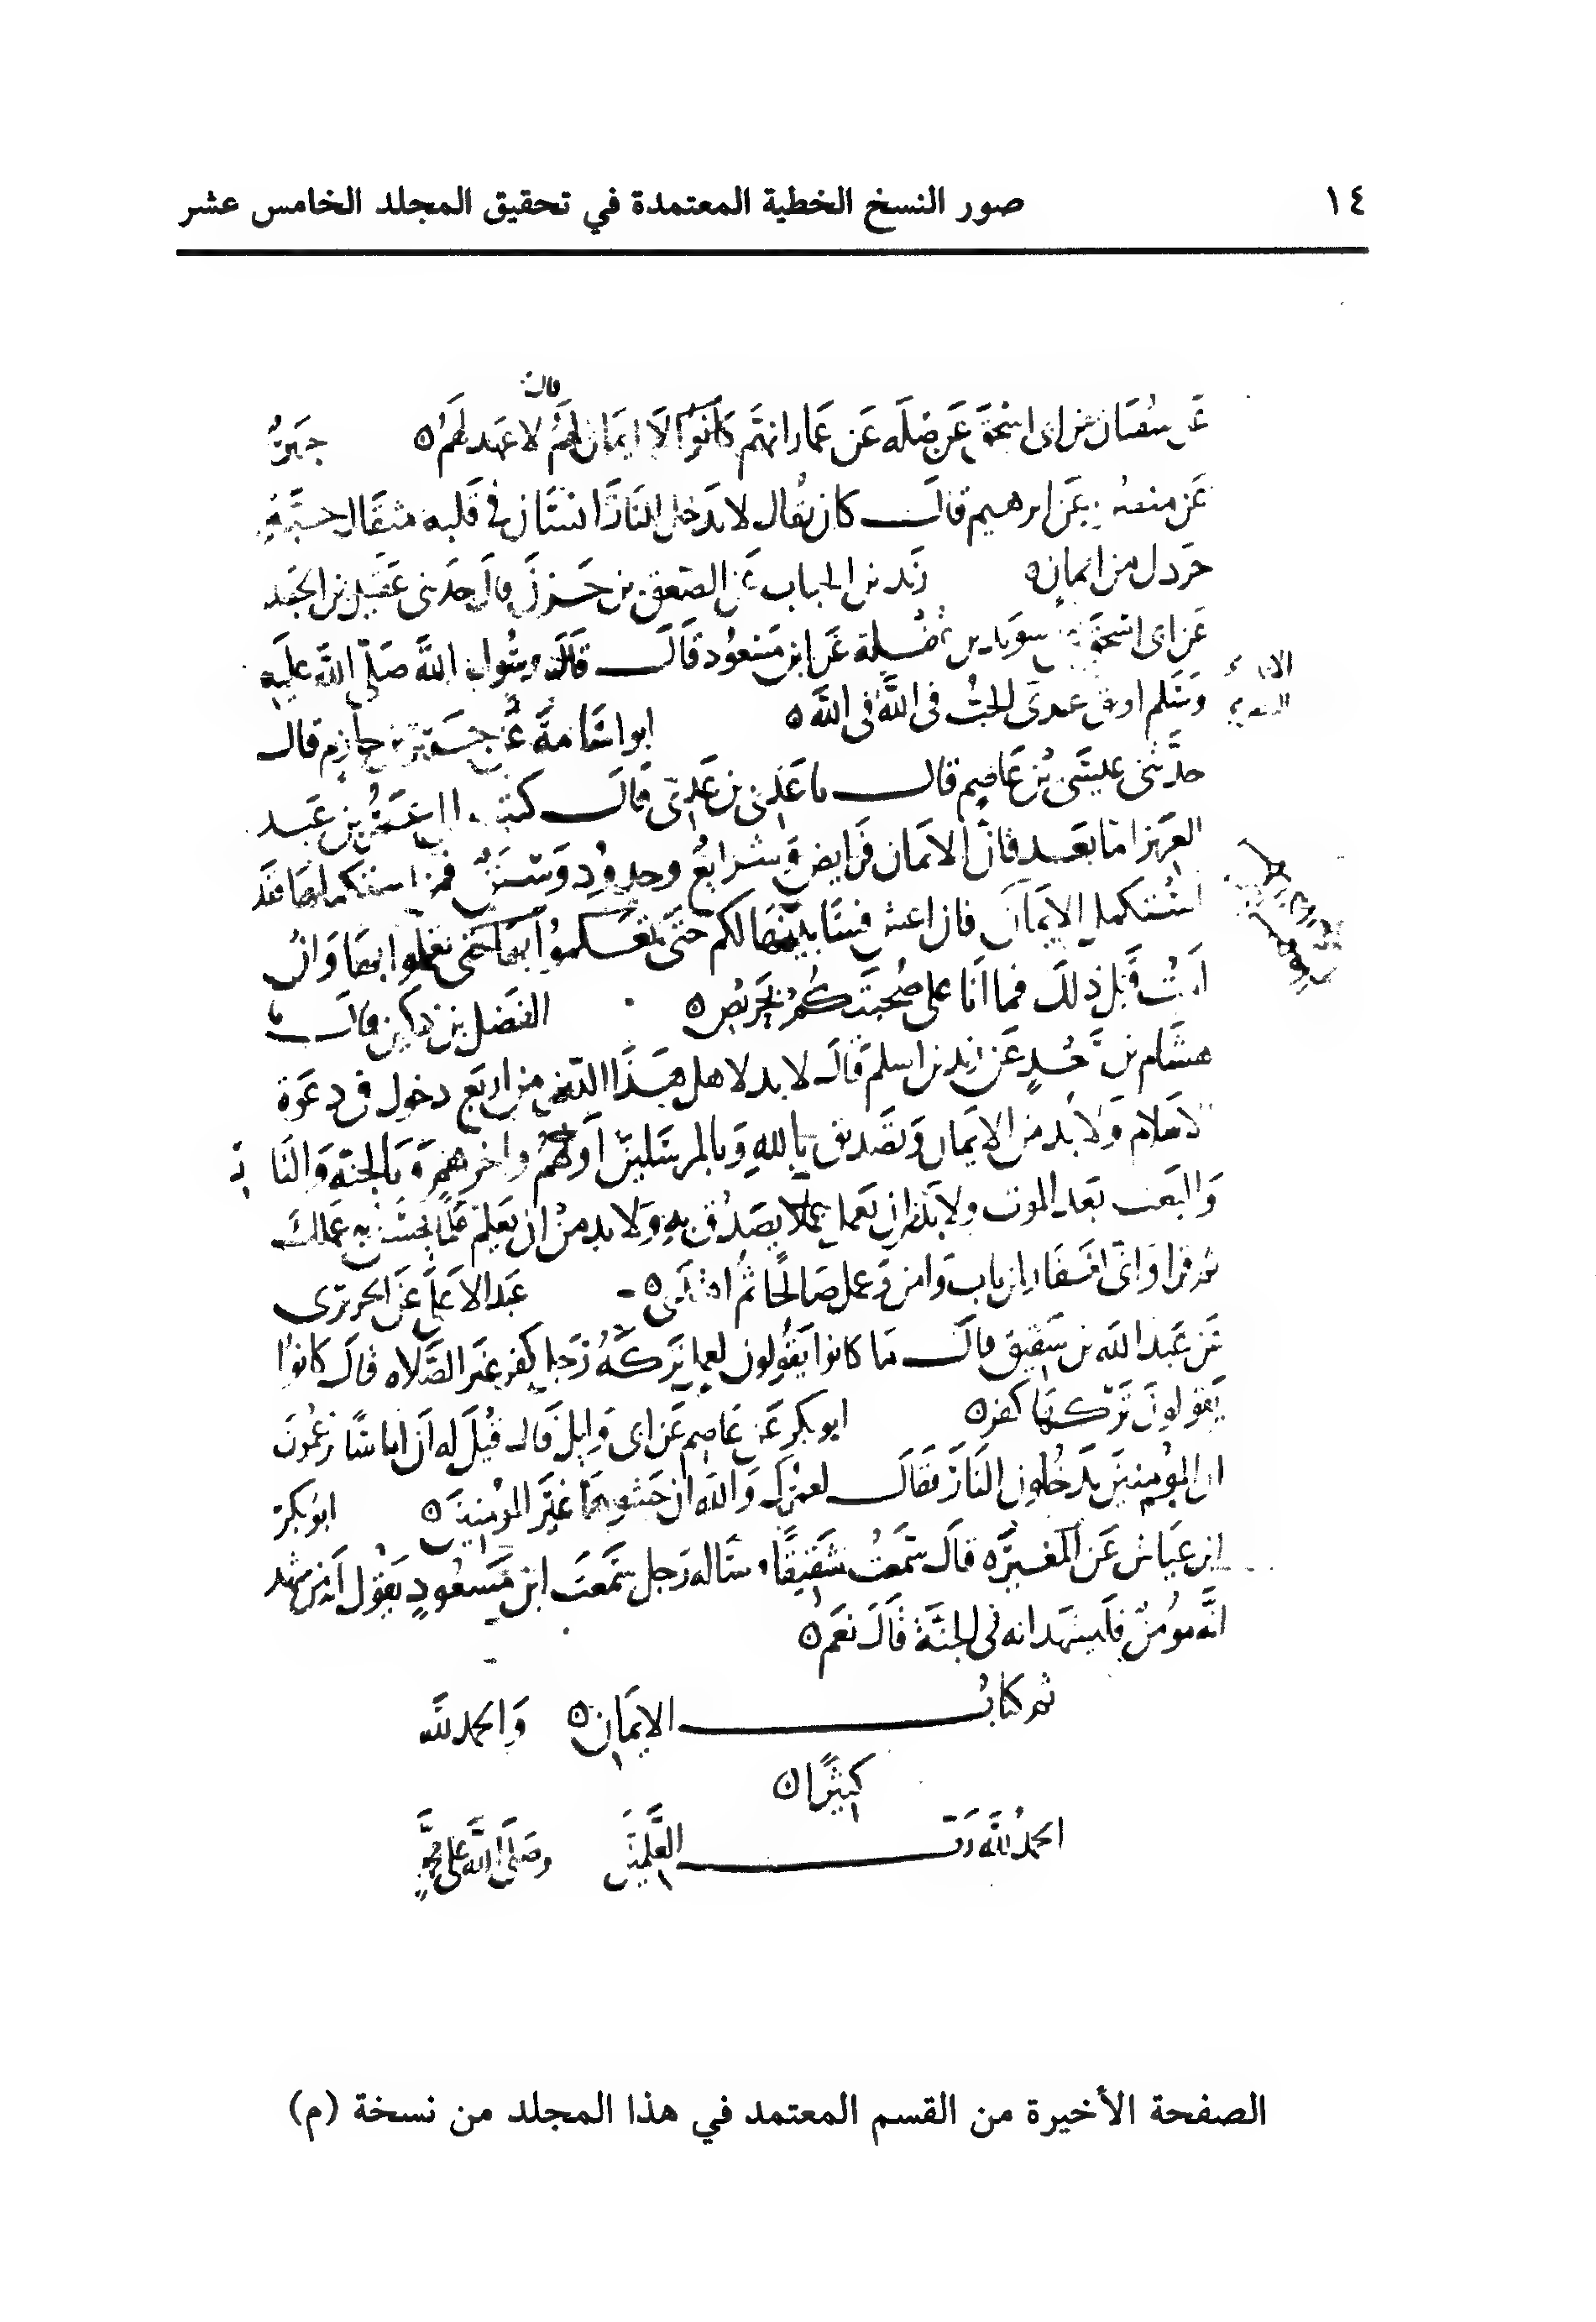 ١٤ صور النسخ الخطية المعتمدة في تحقيق المجلد الخامس عشر
قال
عن سفيان عن ابى اسحق عن صله عن عمار انهم كانوا لا ايمان لهم لا عهد لهم ه جرير
عن ابرهيم قال كان يقال لا يدخل النار انسان فى قلبه مثقال حبة
خردل من ايمان ه زيد بن الحباب عن الصعق بن حزن قال حدثنى عقيل بن الجعد
عن ابى اسحق سويد بن عن ابن مسعود قال قال رسول الله صلى الله عليه
وسلم اوثق عرى الحب فى الله فى الله ه ابو اسامة عن جرير بن حازم قال
حدثنى عيسى بن عاصم قال ما عدى بن عدى قال كتب الى عمر بن عبد
العزيز اما بعد فان الايمان فرايض وشرايع وحدود وسنن فمن استكملها فقد
استكمل الايمان فان اعش فسابينها لكم حتى تعملوا بها وان
امت قبل ذلك فما انا على صحبتكم بحريص ه الفضل بن دكين قال
هشام بن عن زيد بن اسلم قال لا بد لاهل هذا الدين من اربع دخول فى دعوة
الاسلام ولا بد من الايمان وتصديق بالله وبالمرسلين اولهم واخرهم وبالجنة والنار
والبعث بعد الموت ولا بد من ان تعمل عملا يصدق به ولا بد من ان يعلم علما يحسن به عملك
ثم قرا وانى لغفار لمن تاب وامن وعمل صالحا ثم اهتدى ه عبد الاعلى عن الجريرى
عن عبد الله بن شقيق قال ما كانوا يقولون لعمل تركه رجل كفر غير الصلاه قال كانوا
يقولون تركها كفر ه ابو بكر عن عاصم عن ابى وايل قال قيل له ان اناسا يزعمون
ان المؤمنين يدخلون النار فقال لعمرك والله ان حشوها غير المومنين ه ابو بكر
ابن عياش عن المغيره قال سمعت شقيقا وساله رجل سمعت ابن مسعود يقول انه من شهد
انه مومن فليشهد انه فى الجنة قال نعم ه
تم كتاب الايمان ه والحمد لله
كثيرا ه
الحمد لله رب العلمين وصلى الله على محمد
الصفحة الأخيرة من القسم المعتمد في هذا المجلد من نسخة (م)